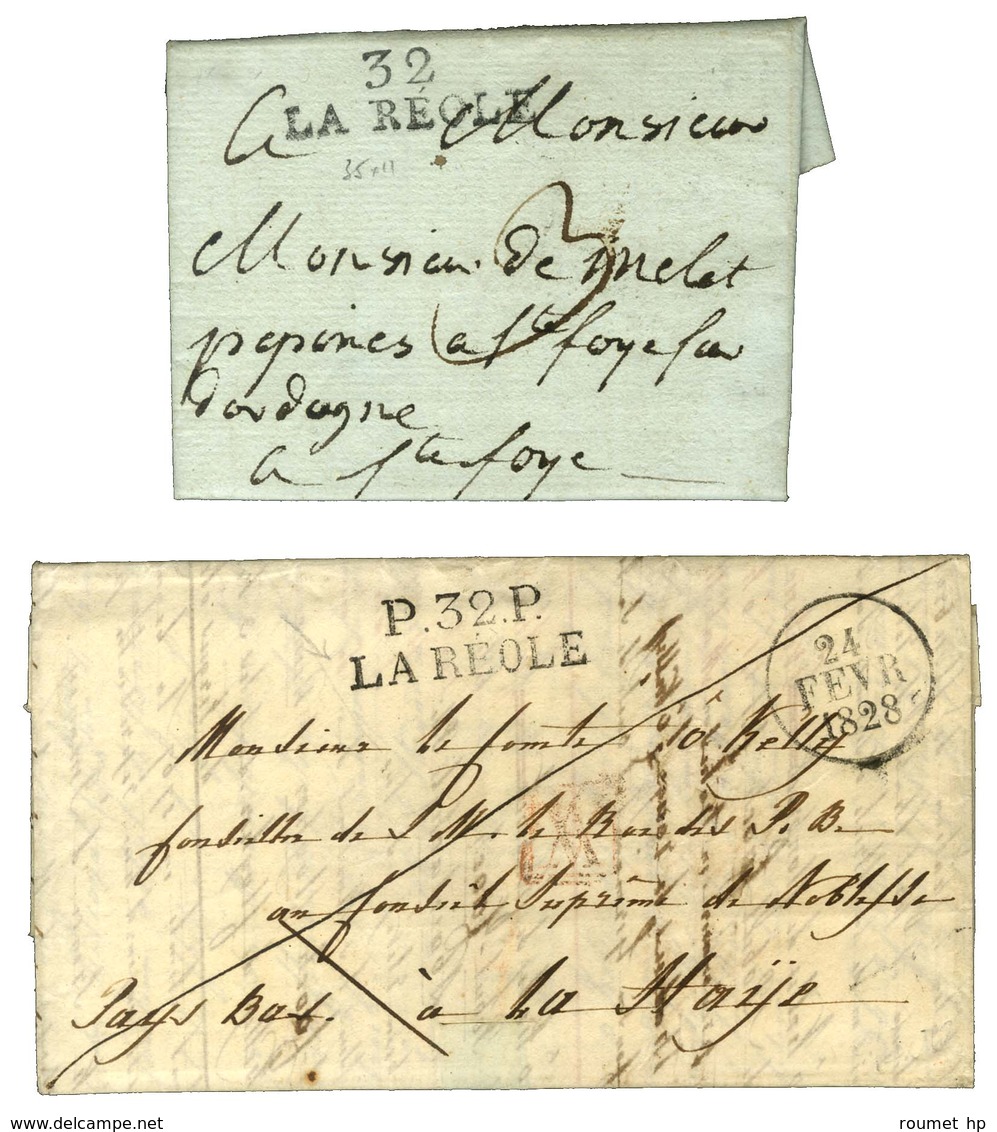 32
LA RÉOLE
A Monsieur
35x11
Monsieur de melet
3
a Ste foye sur
dordogne
a Ste foye
P.32.P.
LA RÉOLE
24
FEVR
1828
Monsieur le Comte O'Kelly
Conseiller de S. M. le Roi des P. B.
au Conseil Suprême de Noblesse
Pays Bas. à La Haÿe
delcampe.net
roumet hp